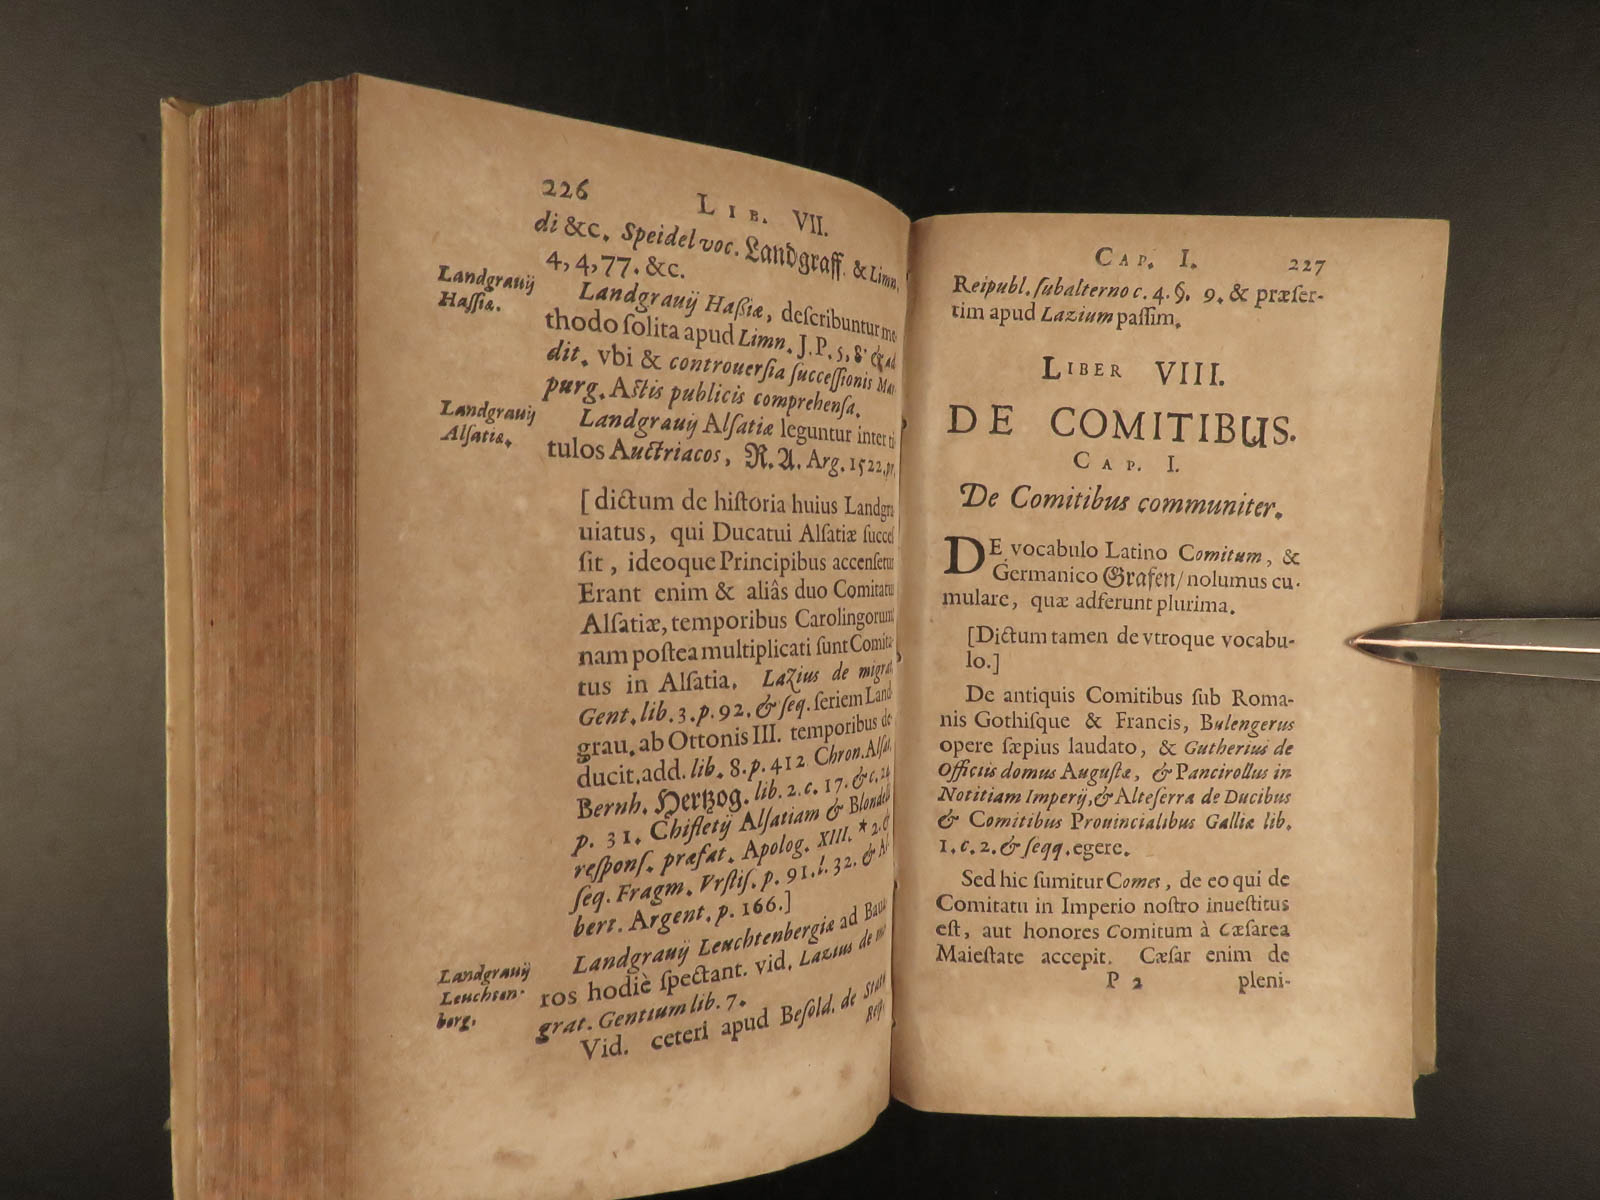 226
LIB. VII.
di &c. Speidel voc. Landgraff. & Limn.
4, 4, 77. &c.
Landgrauij
Hassiæ.
Landgrauij Haßiæ, deſcribuntur me-
thodo ſolita apud Limn. J. P. 5, 8. & ad
dit. vbi & controuerſia ſucceſſionis Mar
purg. Actis publicis comprehenſa.
Landgrauij
Alſatiæ.
Landgrauij Alſatiæ leguntur inter ti
tulos Auctriacos, R. A. Arg. 1522. pr.
[dictum de hiſtoria huius Landgra
uiatus, qui Ducatui Alſatiæ ſucceſ
ſit, ideoque Principibus accenſetur
Erant enim & aliâs duo Comitatus
Alſatiæ, temporibus Carolingorum
nam poſtea multiplicati ſunt Comita
tus in Alſatia. Lazius de migrat.
Gent. lib. 3. p. 92. & ſeq. ſeriem Land
grau. ab Ottonis III. temporibus de
ducit. add. lib. 8. p. 412 Chron. Alſat.
Bernh. Hertzog. lib. 2. c. 17. & c. 24
p. 31. Chifletij Alſatiam & Blondelli
reſponſ. præfat. Apolog. XIII. * 2. &
ſeq. Fragm. Vrſtiſ. p. 91. l. 32. & Al
bert. Argent. p. 166.]
Landgrauij
Leuchten-
berg.
Landgrauij Leuchtenbergiæ ad Baua
ros hodiè ſpectant. vid. Lazius de mi
grat. Gentium lib. 7.
Vid. ceteri apud Beſold. de Statu
Reip.
CAP. I.
227
Reipubl. ſubalterno c. 4. §. 9. & præſer-
tim apud Lazium paſſim.
LIBER VIII.
DE COMITIBUS.
CAP. I.
De Comitibus communiter.
DE vocabulo Latino Comitum, &
Germanico Grafen/ nolumus cu-
mulare, quæ adferunt plurima.
[Dictum tamen de vtroque vocabu-
lo.]
De antiquis Comitibus ſub Roma-
nis Gothiſque & Francis, Bulengerus
opere ſæpius laudato, & Gutherius de
Officiis domus Auguſtæ, & Pancirollus in
Notitiam Imperij, & Alteſerra de Ducibus
& Comitibus Prouincialibus Galliæ lib.
1. c. 2. & ſeqq. egere.
Sed hic ſumitur Comes, de eo qui de
Comitatu in Imperio noſtro inueſtitus
eſt, aut honores Comitum à Cæſarea
Maieſtate accepit. Cæſar enim de
P 2
pleni-